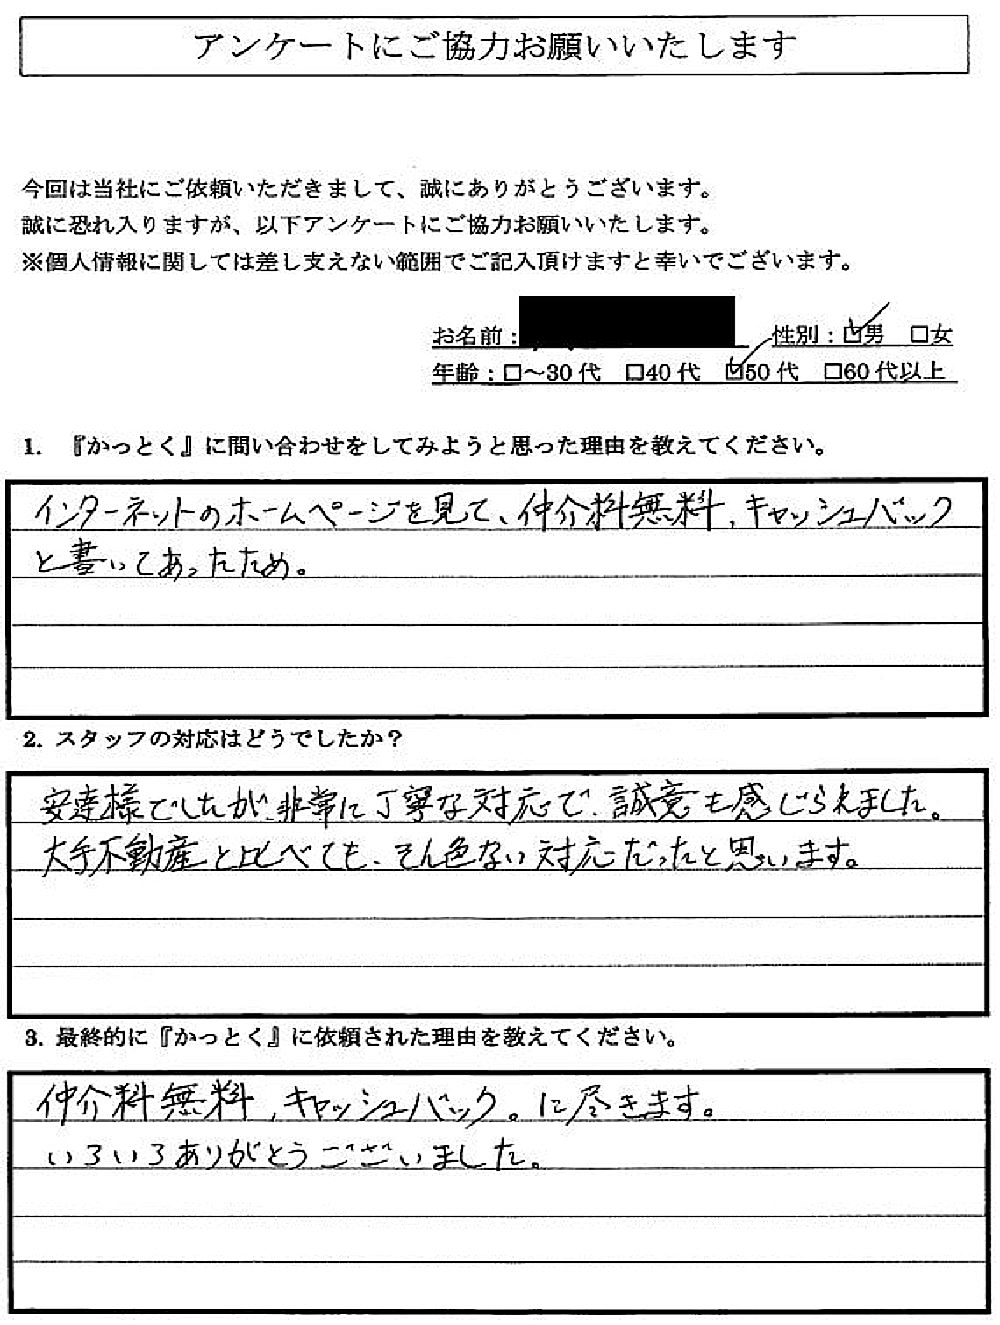 アンケートにご協力お願いいたします
今回は当社にご依頼いただきまして、誠にありがとうございます。
誠に恐れ入りますが、以下アンケートにご協力お願いいたします。
※個人情報に関しては差し支えない範囲でご記入頂けますと幸いでございます。
お名前： 性別：☑男 □女
年齢：□～30代 □40代 ☑50代 □60代以上
1. 『かっとく』に問い合わせをしてみようと思った理由を教えてください。
インターネットのホームページを見て、仲介料無料、キャッシュバック
と書いてあったため。
2. スタッフの対応はどうでしたか？
安達様でしたが、非常に丁寧な対応で、誠意も感じられました。
大手不動産と比べても、そん色ない対応だったと思います。
3. 最終的に『かっとく』に依頼された理由を教えてください。
仲介料無料、キャッシュバック。に尽きます。
いろいろありがとうございました。